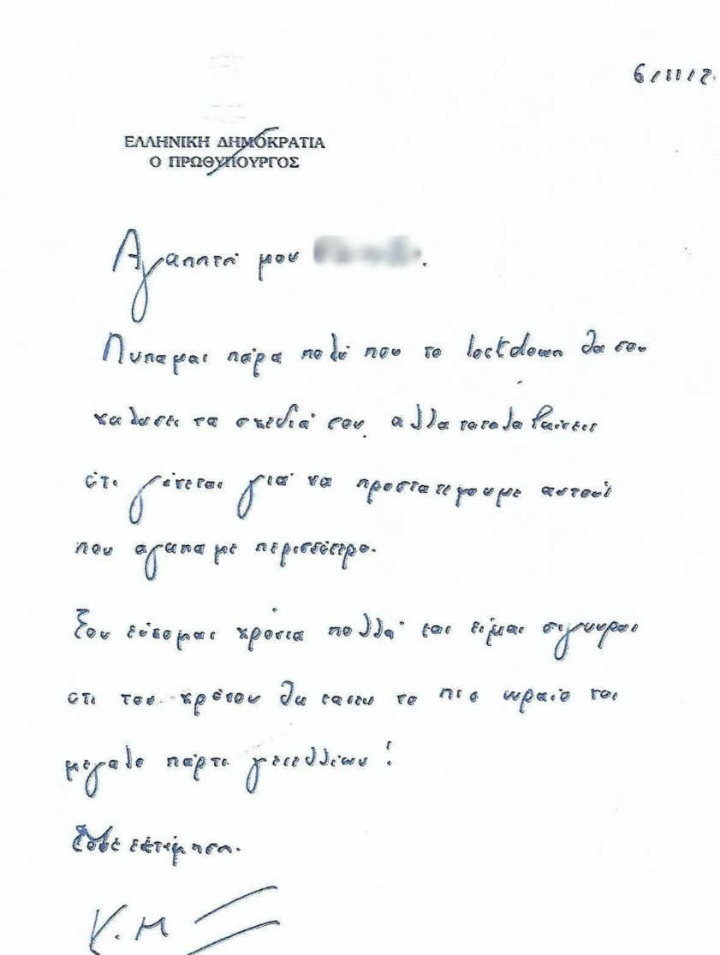 6/11/2
ΕΛΛΗΝΙΚΗ ΔΗΜΟΚΡΑΤΙΑ
Ο ΠΡΩΘΥΠΟΥΡΓΟΣ
Αγαπητή μου
Λυπάμαι πάρα πολύ που το lockdown θα σου
χαλάσει τα σχεδιά σου, αλλά καταλαβαίνεις
ότι γίνεται για να προστατέψουμε αυτούς
που αγαπάμε περισσότερο.
Σου εύχομαι χρόνια πολλά και είμαι σίγουρος
ότι του χρόνου θα κάνεις το πιο ωραίο και
μεγάλο πάρτι γενεθλίων!
εκτίμηση.
Κ.Μ